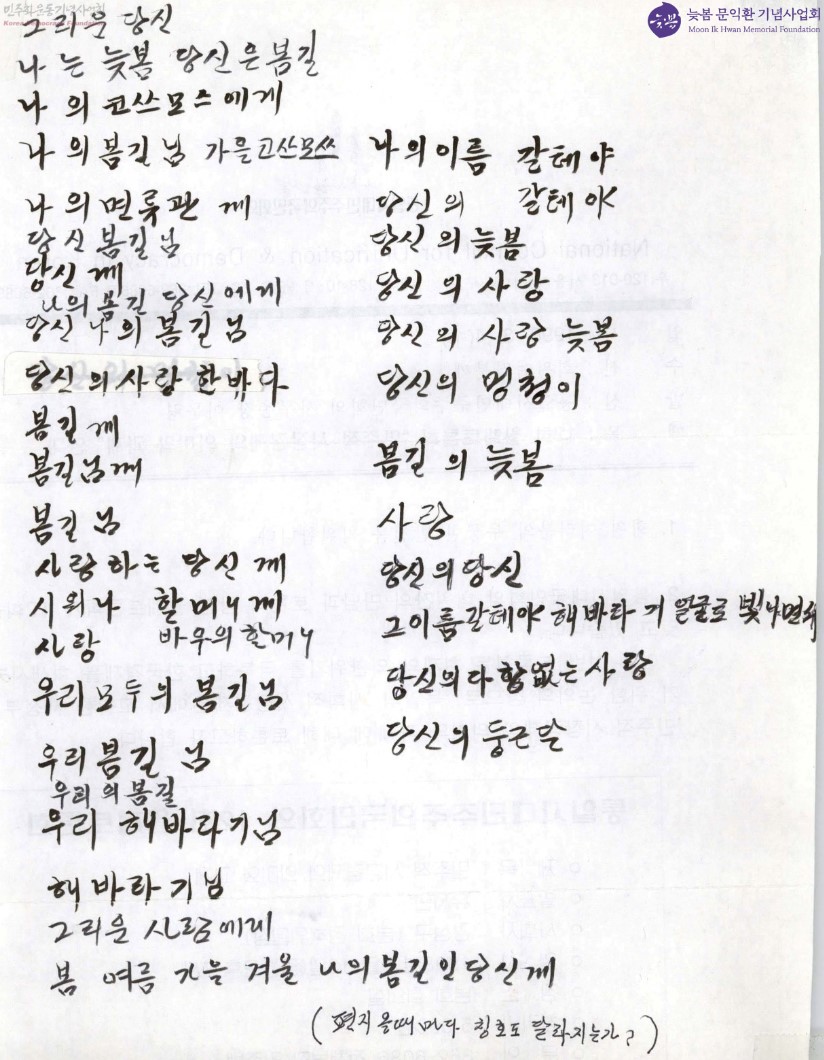 민주화운동기념사업회
Korea Democracy Foundation
늦봄 문익환 기념사업회
Moon Ik Hwan Memorial Foundation
그리운 당신
나는 늦봄 당신은 봄길
나의 코쓰모스에게
나의 봄길님 가을고쓰모쓰
나의 면류관께
당신 봄길님
당신께
나의 봄길 당신에게
당신 나의 봄길님
당신의 사랑 한바다
봄길께
봄길님께
봄길님
사랑하는 당신께
시위나 할머니께
사랑 바우의 할머니
우리 모두의 봄길님
우리 봄길님
우리의 봄길
우리 해바라기님
해바라기님
그리운 사람에게
봄 여름 가을 겨울 나의 봄길인 당신께
나의 이름 갈테야
당신의 갈테야
당신의 늦봄
당신의 사랑
당신의 사랑 늦봄
당신의 멍청이
봄길의 늦봄
사랑
당신의 당신
그이름 갈테야 해바라기 얼굴로 빛나면서
당신의 다함없는 사랑
당신의 둥근달
(편지 올때마다 칭호도 달라지는가?)